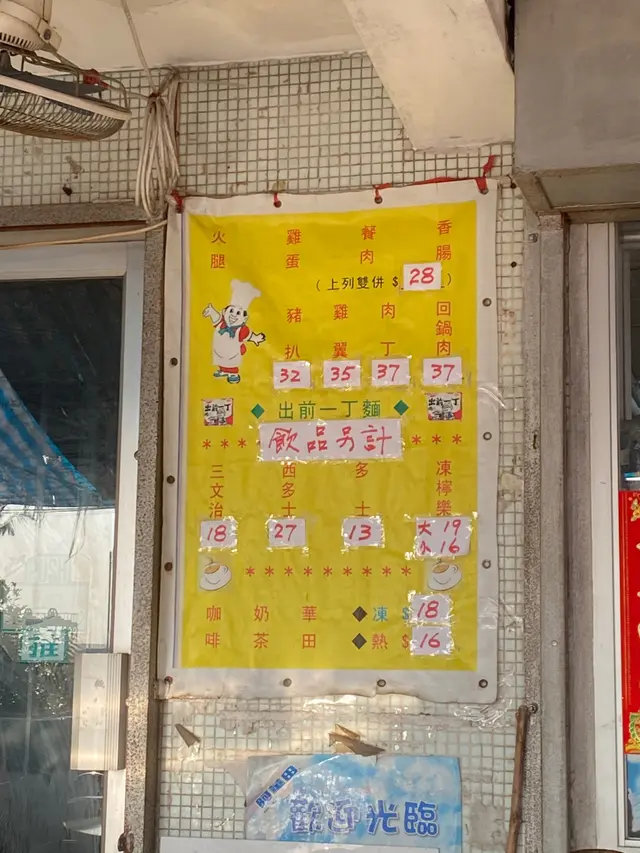 火腿 雞蛋 餐肉 香腸
(上列雙併 $ 28)
豬扒 雞翼 肉丁 回鍋肉
32 35 37 37
出前一丁 ◆ 出前一丁麵 ◆ 出前一丁
*** 飲品另計 ***
三文治 西多士 多士 凍檸樂
18 27 13 大 19
小 16
* * * * * * * * *
咖啡 奶茶 華田 ◆ 凍 $ 18
◆ 熱 $ 16
阿華田
歡迎光臨